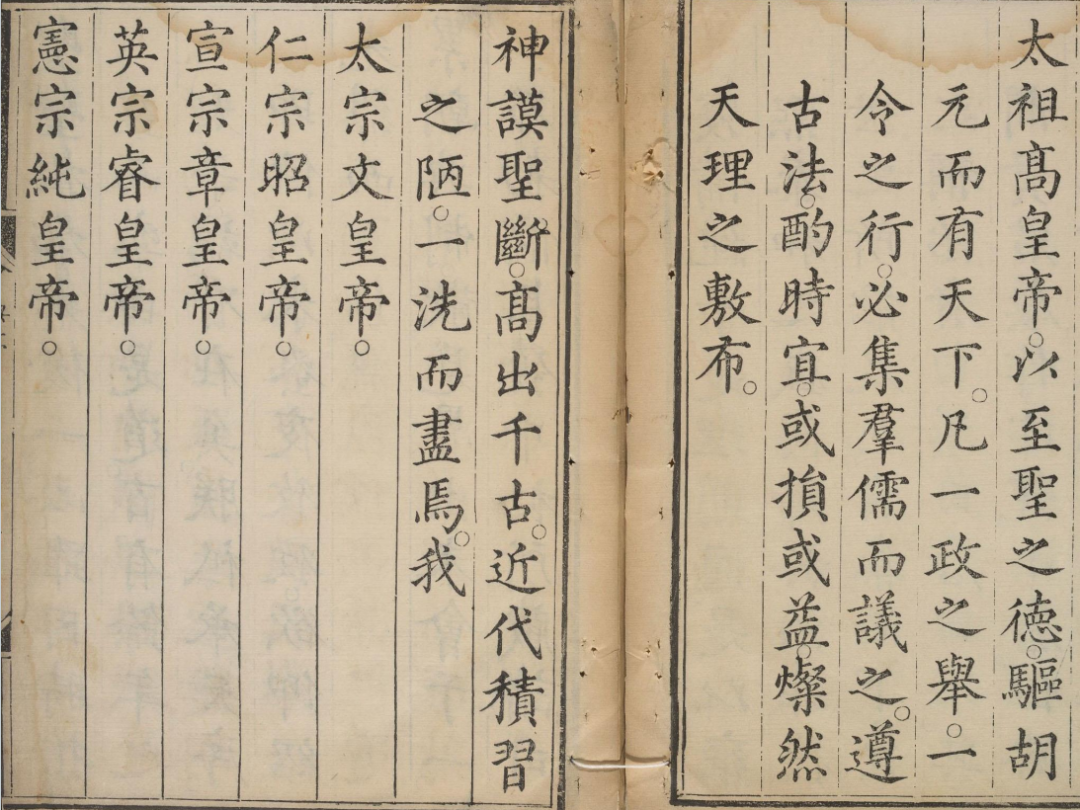 太祖髙皇帝。以至聖之德。驅胡
元而有天下。凡一政之舉。一
令之行。必集羣儒而議之。遵
古法。酌時宜。或損或益。燦然
天理之敷布。
神謨聖斷。髙出千古。近代積習
之陋。一洗而盡焉。我
太宗文皇帝。
仁宗昭皇帝。
宣宗章皇帝。
英宗睿皇帝。
憲宗純皇帝。